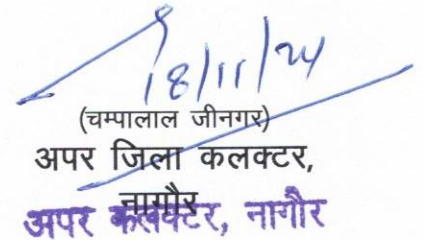 18/11/24
(चम्पालाल जीनगर)
अपर जिला कलक्टर,
नागौर
अपर कलक्टर, नागौर